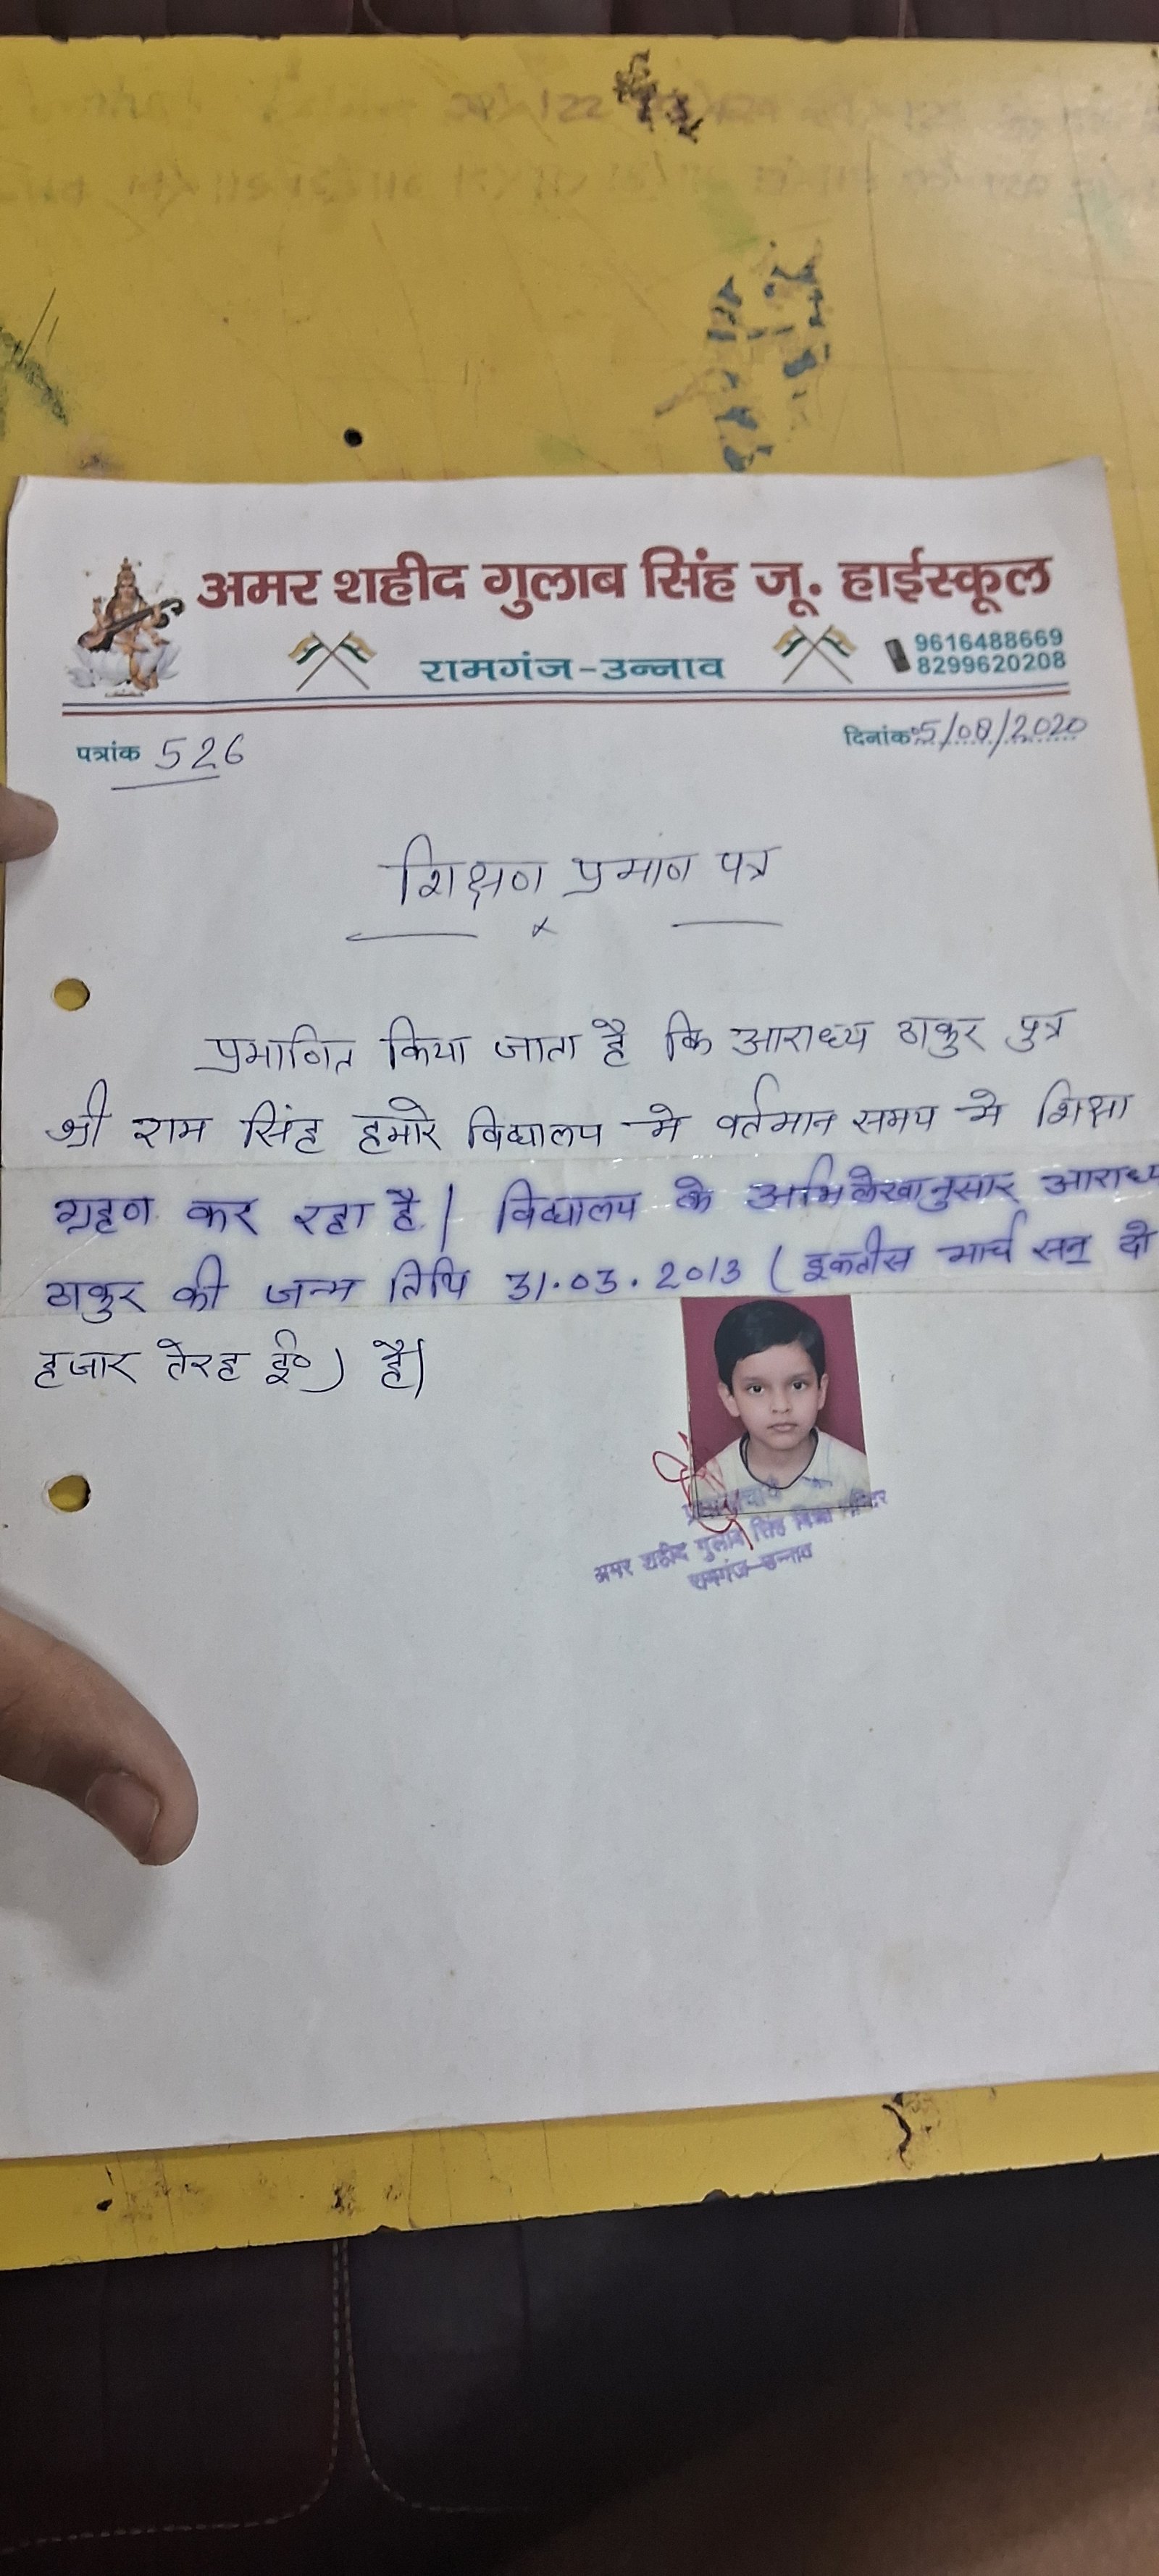 अमर शहीद गुलाब सिंह जू. हाईस्कूल
रामगंज-उन्नाव
9616488669
8299620208
पत्रांक 526
दिनांक 05/08/2020
शिक्षण प्रमाण पत्र
प्रमाणित किया जाता है कि आराध्य ठाकुर पुत्र
श्री राम सिंह हमारे विद्यालय मे वर्तमान समय मे शिक्षा
ग्रहण कर रहा है। विद्यालय के अभिलेखानुसार आराध्य
ठाकुर की जन्म तिथि 31.03.2013 (इकतीस मार्च सन् दो
हजार तेरह ई०) है।
अमर शहीद गुलाब सिंह
रामगंज-उन्नाव